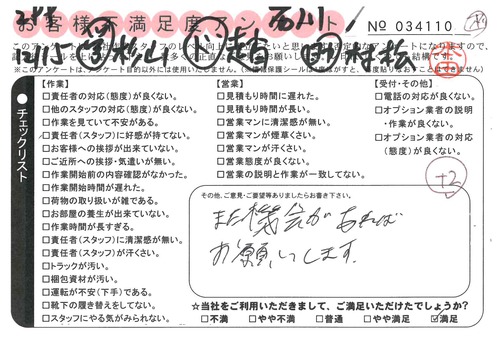 お客様不満足度アンケート
石川
№ 034110
※このアンケートは、アンケート目的以外には使用しません。
チェックリスト
【作業】
□責任者の対応(態度)が良くない。
□他のスタッフの対応(態度)が良くない。
□作業を見ていて不安がある。
□責任者(スタッフ)に好感が持てない。
□お客様への挨拶が出来ていない。
□ご近所への挨拶・気遣いが無い。
□作業開始前の内容確認がなかった。
□作業開始時間が遅れた。
□荷物の取り扱いが雑である。
□お部屋の養生が出来ていない。
□作業時間が長すぎる。
□責任者(スタッフ)に清潔感が無い。
□責任者(スタッフ)が汗くさい。
□トラックが汚い。
□梱包資材が汚い。
□運転が不安(下手)である。
□靴下の履き替えをしてない。
□スタッフにやる気がみられない。
【営業】
□見積もり時間に遅れた。
□見積もり時間が長い。
□営業マンに清潔感が無い。
□営業マンが煙草くさい。
□営業マンが汗くさい。
□営業態度が良くない。
□営業の説明と作業が一致してない。
【受付・その他】
□電話の対応が良くない。
□オプション業者の説明・作業が良くない。
□オプション業者の対応(態度)が良くない。
+2
その他、ご意見・ご要望等ありましたらお書き下さい。
また機会があれば
お願いします。
☆当社をご利用いただきまして、ご満足いただけたでしょうか?
□不満 □やや不満 □普通 □やや満足 ☑満足